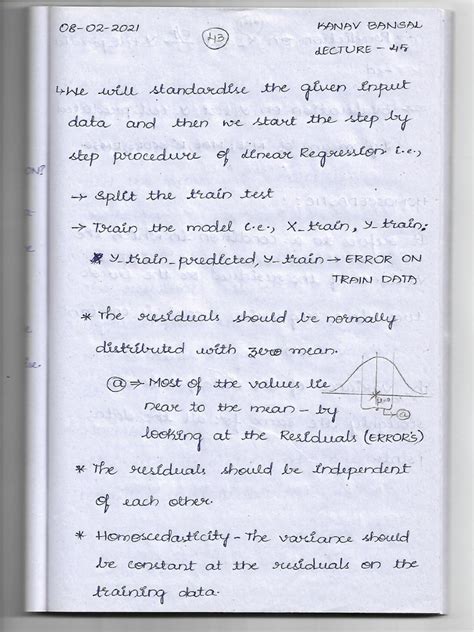 08-02-2021
43
KANAV BANSAL
LECTURE - 45
↳ We will standardise the given input
data and then we start the step by
step procedure of Linear Regression i.e.,
→ Split the train test
→ Train the model i.e., X_train, Y_train;
* Y_train_predicted, Y_train → ERROR ON
TRAIN DATA
* The residuals should be normally
distributed with zero mean.
ⓐ ⇒ Most of the values lie
near to the mean - by
looking at the Residuals (ERROR'S)
μ=0
ⓐ
* The residuals should be independent
of each other.
* Homoscedasticity - The variance should
be constant at the residuals on the
training data.